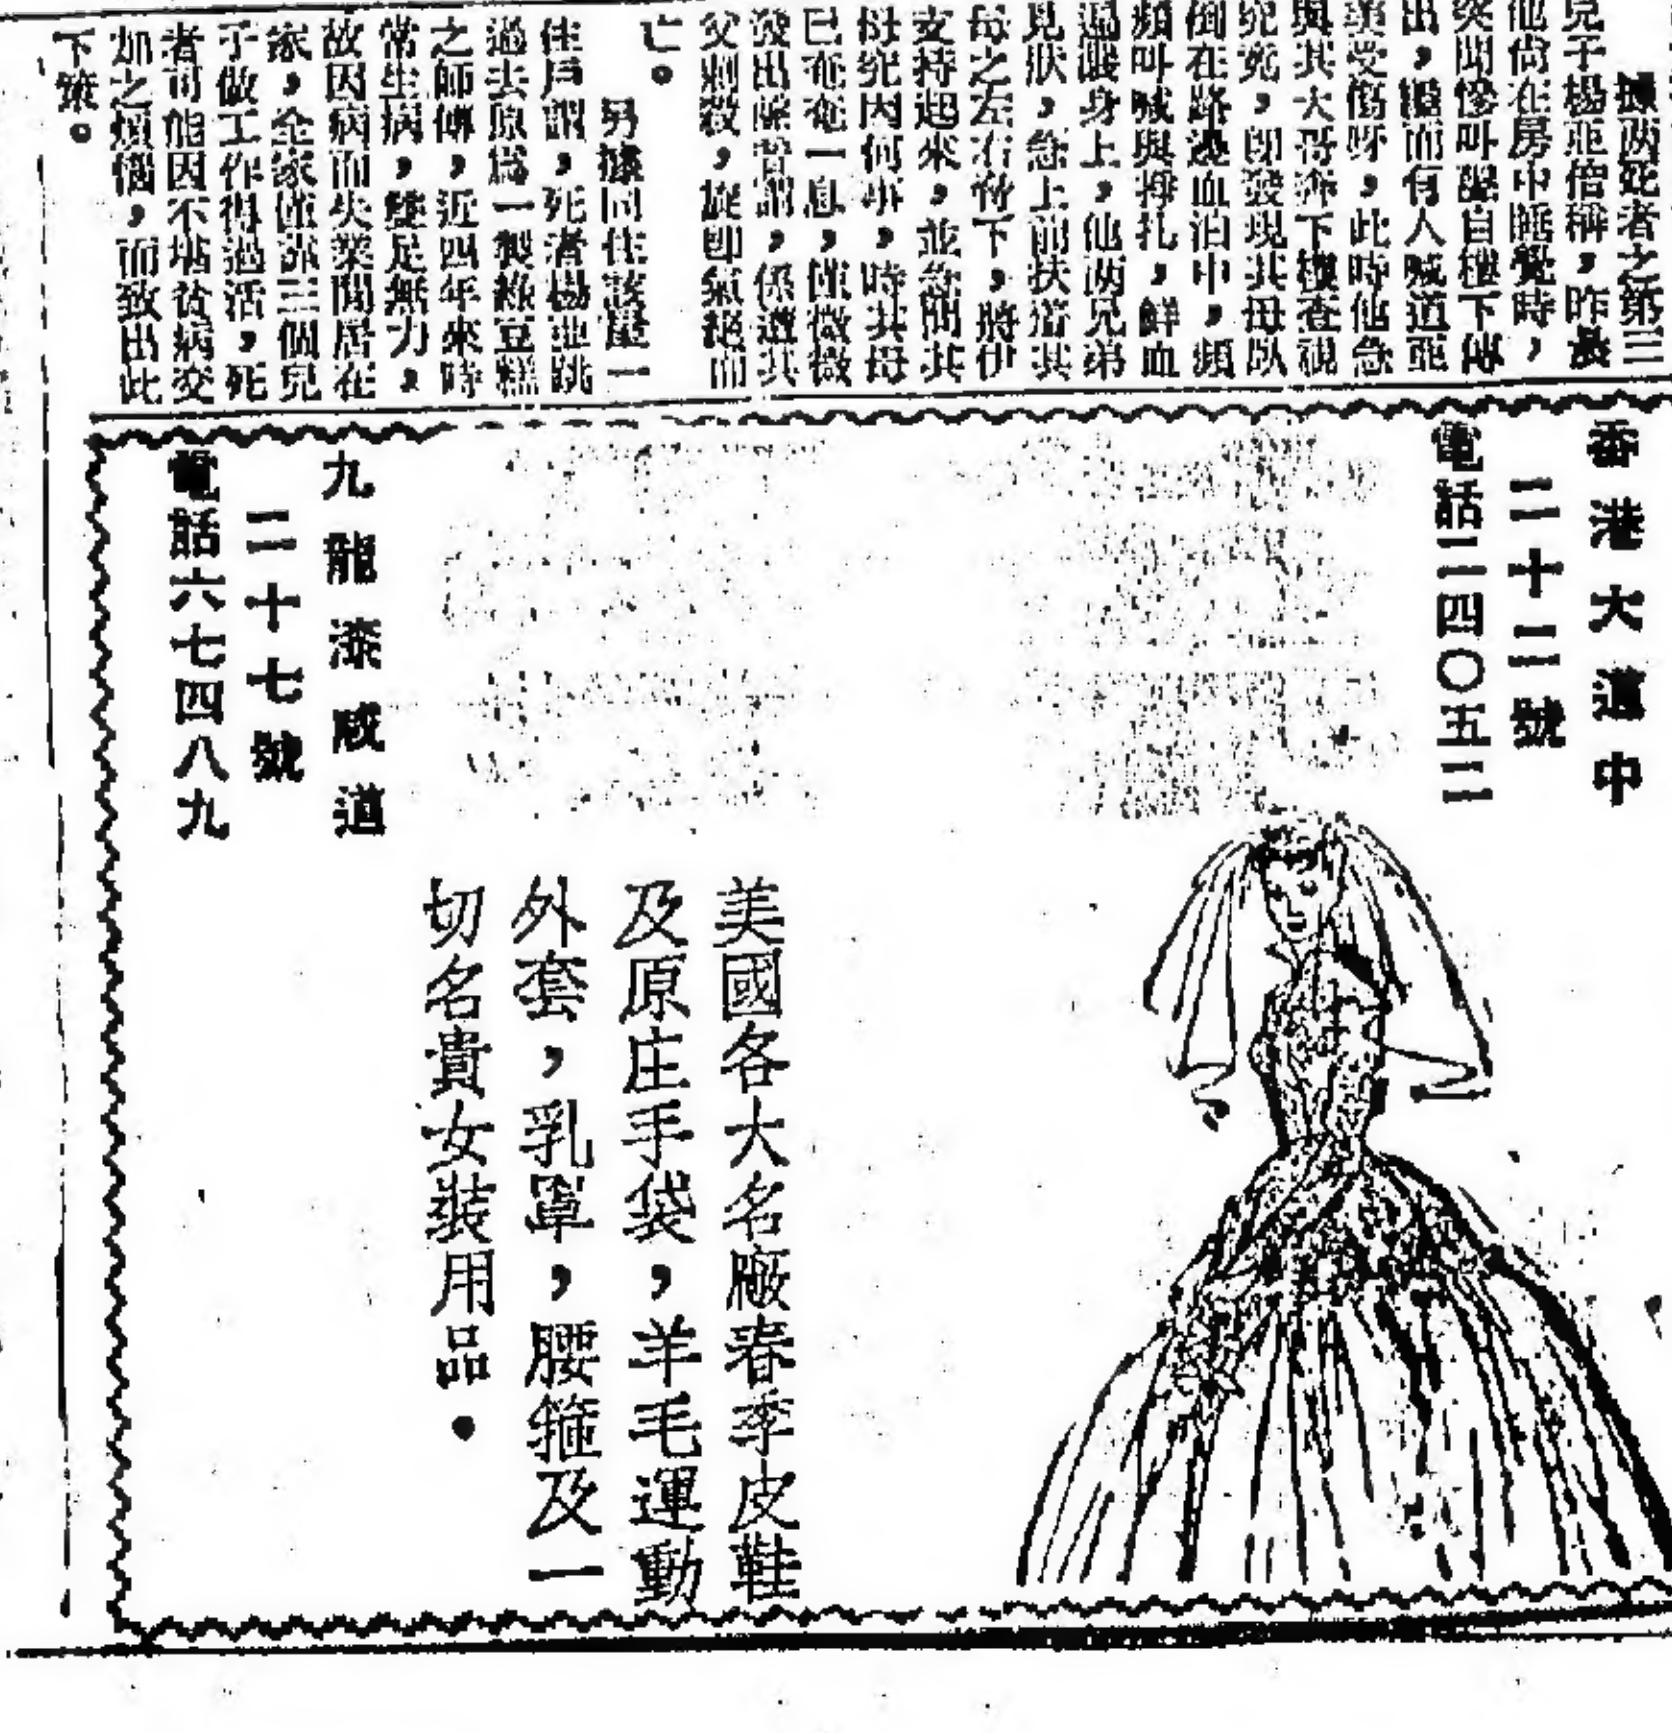 據两死者之第三
兒子楊亞倍稱，昨晨
他尚在房中睡覺時，
突聞慘叫聲自樓下傳
出，繼而有人喊道亞
業受傷呀，此時他急
與其大哥奔下樓查視
究竟，即發現其母臥
倒在路邊血泊中，頻
頻叫喊與掙扎，鮮血
遍濺身上，他两兄弟
見狀，急上前扶着其
母之左右脅下，將伊
支持起來，並急問其
母究因何事，時其母
已奄奄一息，僅微微
發出聲音謂，係遭其
父刺殺，旋即氣絕而
亡。
另據同住該屋一
住戶謂，死者楊亜跳
過去原為一製綠豆糕
之師傅，近四年來時
常生病，雙足無力，
故因病而失業閒居在
家，全家僅靠三個兒
子做工作得過活，死
者可能因不堪貧病交
加之煩惱，而致出此
下策。
香港大道中
二十二號
電話二四〇五二
美國各大名廠春季皮鞋
及原庄手袋，羊毛運動
外套，乳罩，腰箍及一
切名貴女裝用品．
九龍漆咸道
二十七號
電話六七四八九